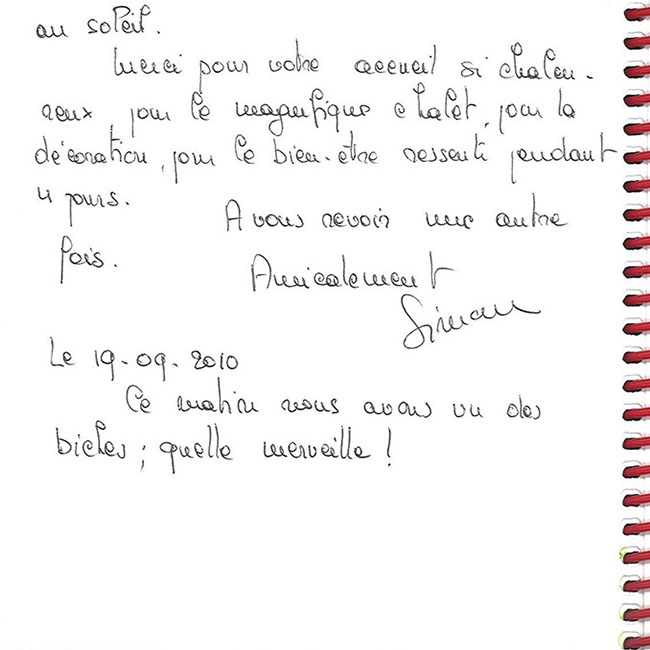 au soleil.
Merci pour votre accueil si chaleu-
reux pour le magnifique chalet, pour la
décoration, pour le bien-être ressenti pendant
4 jours.
A vous revoir une autre
fois.
Amicalement
Simon
Le 19-09-2010
Ce matin nous avons vu des
biches; quelle merveille !